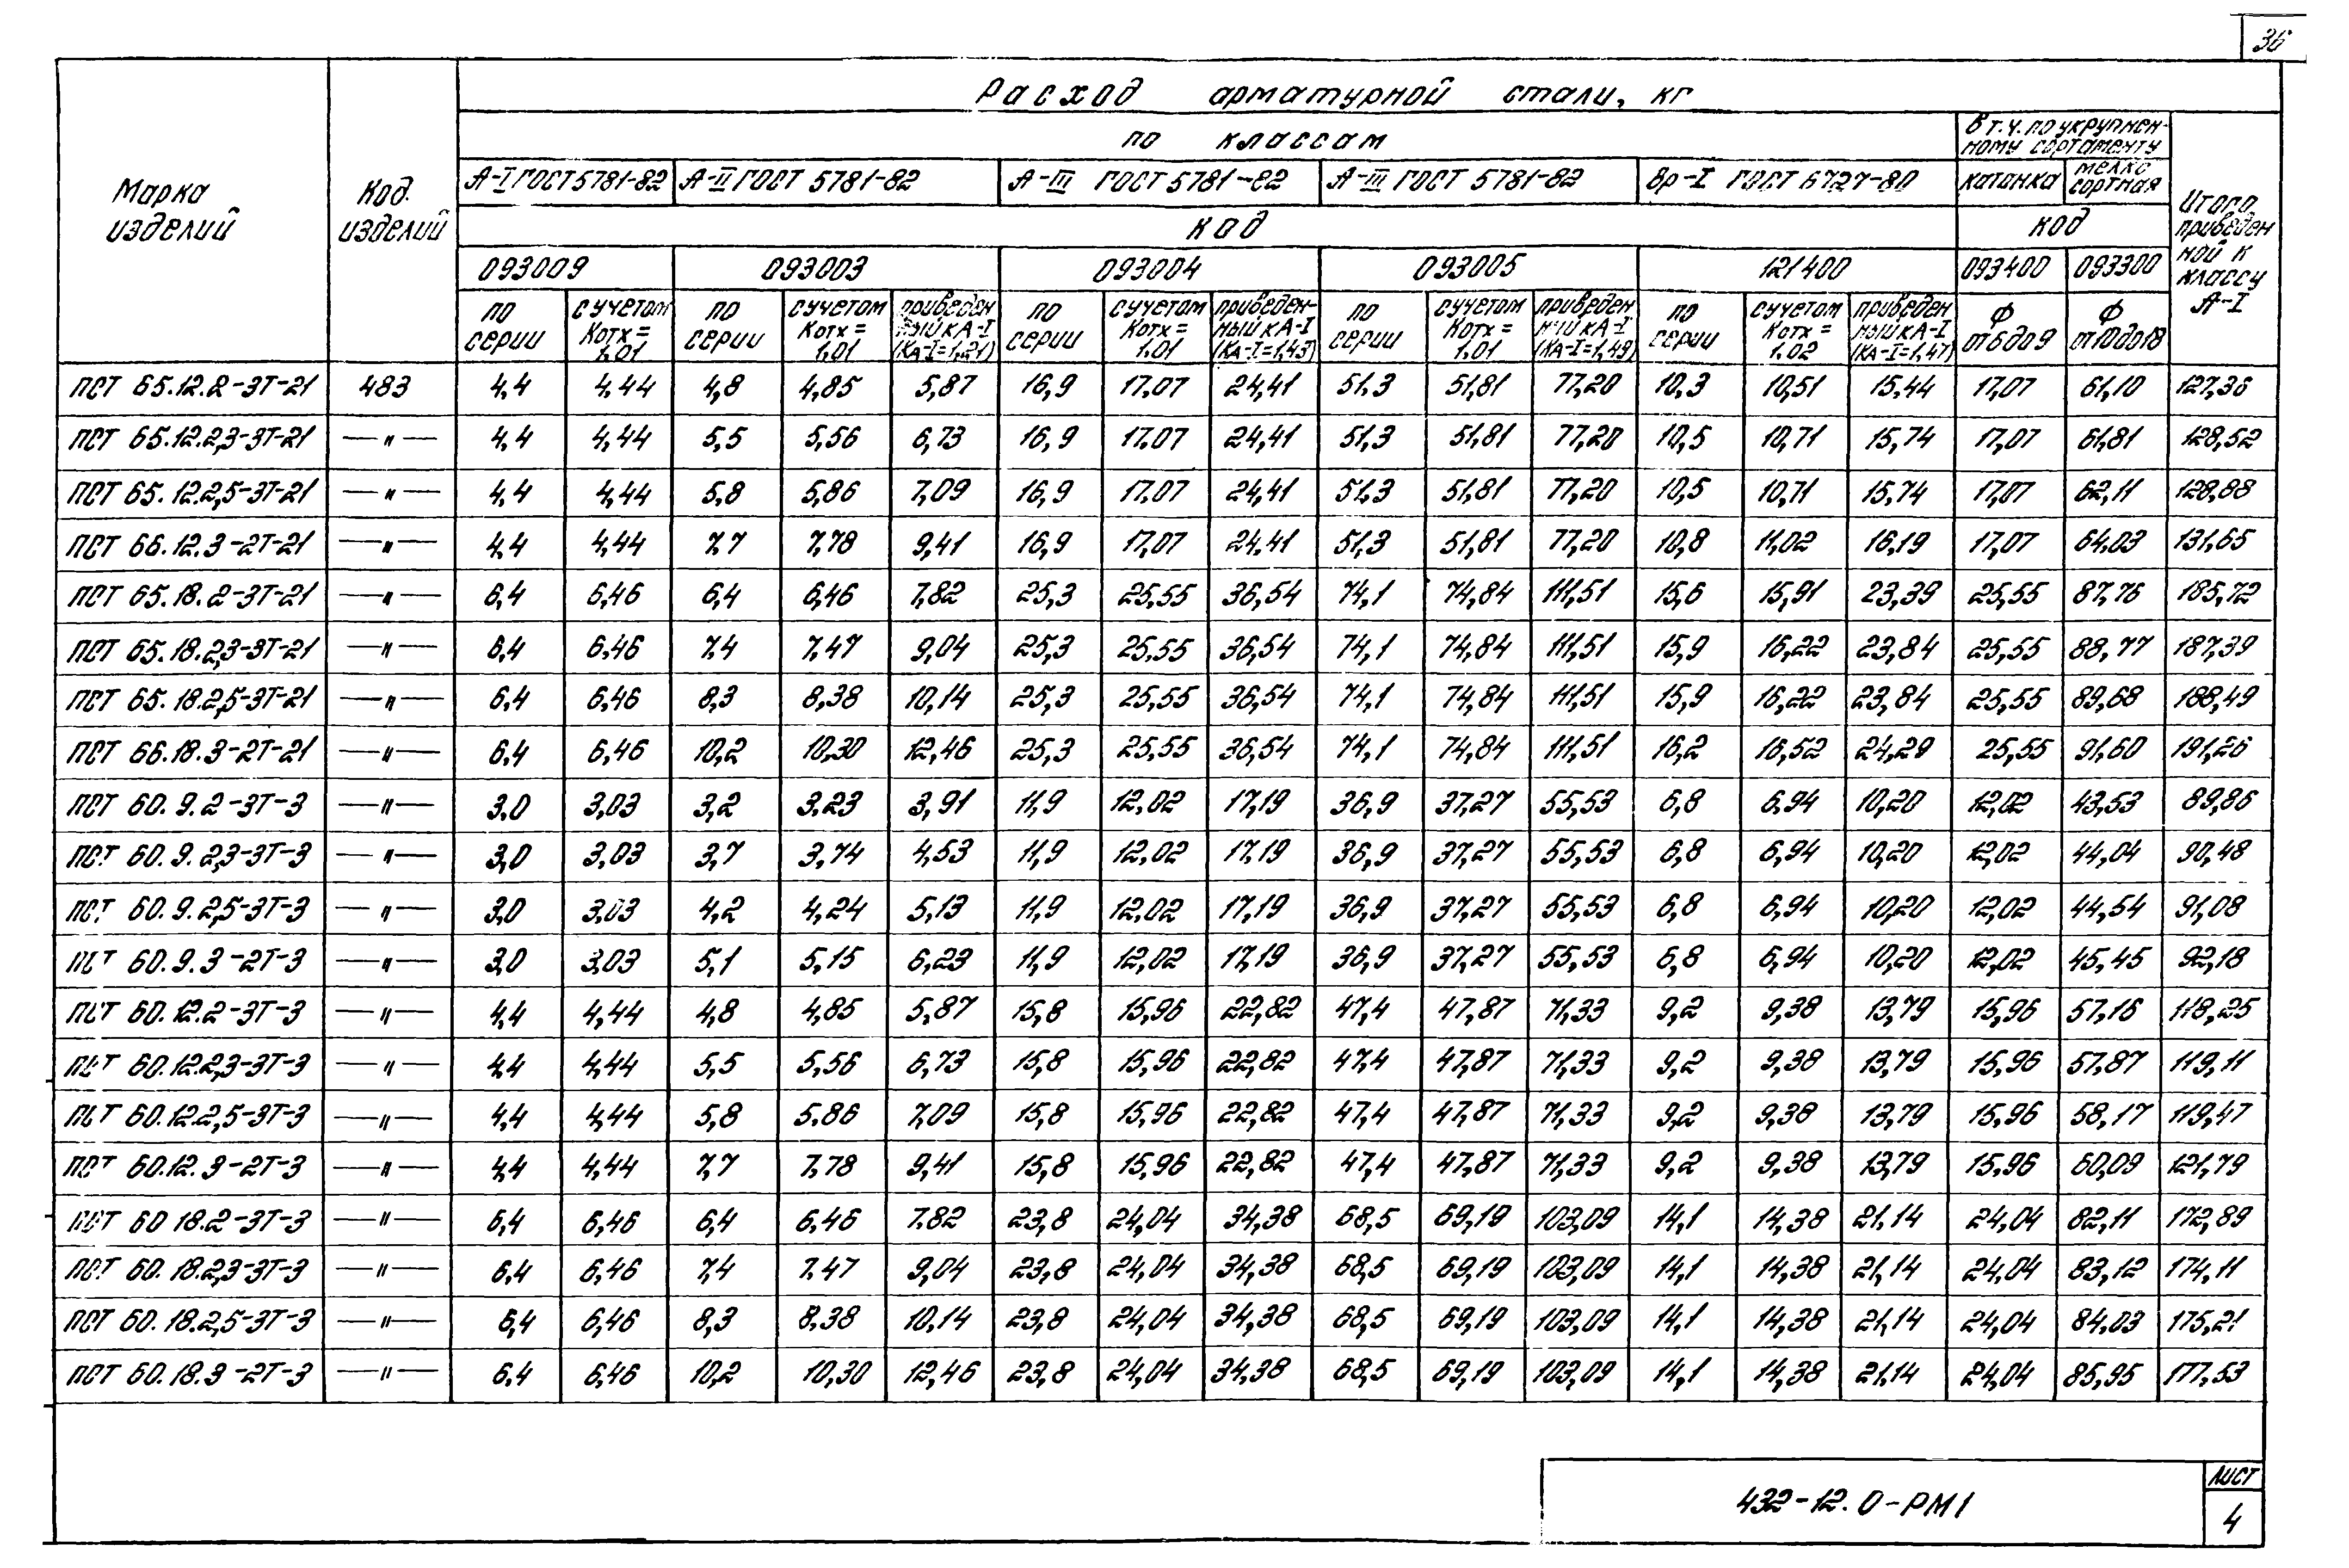 36
Расход арматурной стали, кг
по классам
в т.ч. по укрупнен-
ному сортаменту
Марка
изделий
Код.
изделий
А-I ГОСТ 5781-82 А-II ГОСТ 5781-82 А-III ГОСТ 5781-82 А-III ГОСТ 5781-82 Вр-I ГОСТ 6727-80 катанка мелко сортная
Итого приведен ной к классу А-I
Код Код
093009 093003 093004 093005 121400 093400 093300
по серии с учетом Котх = 1,01 по серии с учетом Котх = 1,01 приведен ный к А-I (КА-I=1,21) по серии с учетом Котх = 1,01 приведен- ный к А-I (КА-I=1,43) по серии с учетом Котх = 1,01 приведен ный к А-I (КА-I=1,49) по серии с учетом Котх = 1,02 приведен ный к А-I (КА-I=1,47) Ф от 6 до 9 Ф от 10 до 18
ПСТ 65.12.2-3Т-21 483 4,4 4,44 4,8 4,85 5,87 16,9 17,07 24,41 51,3 51,81 77,20 10,3 10,51 15,44 17,07 61,10 127,36
ПСТ 65.12.2,3-3Т-21 —"— 4,4 4,44 5,5 5,56 6,73 16,9 17,07 24,41 51,3 51,81 77,20 10,5 10,71 15,74 17,07 61,81 128,52
ПСТ 65.12.2,5-3Т-21 —"— 4,4 4,44 5,8 5,86 7,09 16,9 17,07 24,41 51,3 51,81 77,20 10,5 10,71 15,74 17,07 62,11 128,88
ПСТ 66.12.3-2Т-21 —"— 4,4 4,44 7,7 7,78 9,41 16,9 17,07 24,41 51,3 51,81 77,20 10,8 11,02 16,19 17,07 64,03 131,65
ПСТ 65.18.2-3Т-21 —"— 6,4 6,46 6,4 6,46 7,82 25,3 25,55 36,54 74,1 74,84 111,51 15,6 15,91 23,39 25,55 87,76 185,72
ПСТ 65.18.2,3-3Т-21 —"— 6,4 6,46 7,4 7,47 9,04 25,3 25,55 36,54 74,1 74,84 111,51 15,9 16,22 23,84 25,55 88,77 187,39
ПСТ 65.18.2,5-3Т-21 —"— 6,4 6,46 8,3 8,38 10,14 25,3 25,55 36,54 74,1 74,84 111,51 15,9 16,22 23,84 25,55 89,68 188,49
ПСТ 66.18.3-2Т-21 —"— 6,4 6,46 10,2 10,30 12,46 25,3 25,55 36,54 74,1 74,84 111,51 16,2 16,52 24,29 25,55 91,60 191,26
ПСТ 60.9.2-3Т-3 —"— 3,0 3,03 3,2 3,23 3,91 11,9 12,02 17,19 36,9 37,27 55,53 6,8 6,94 10,20 12,02 43,53 89,86
ПСТ 60.9.2,3-3Т-3 —"— 3,0 3,03 3,7 3,74 4,53 11,9 12,02 17,19 36,9 37,27 55,53 6,8 6,94 10,20 12,02 44,04 90,48
ПСТ 60.9.2,5-3Т-3 —"— 3,0 3,03 4,2 4,24 5,13 11,9 12,02 17,19 36,9 37,27 55,53 6,8 6,94 10,20 12,02 44,54 91,08
ПСТ 60.9.3-2Т-3 —"— 3,0 3,03 5,1 5,15 6,23 11,9 12,02 17,19 36,9 37,27 55,53 6,8 6,94 10,20 12,02 45,45 92,18
ПСТ 60.12.2-3Т-3 —"— 4,4 4,44 4,8 4,85 5,87 15,8 15,96 22,82 47,4 47,87 71,33 9,2 9,38 13,79 15,96 57,16 118,25
ПСТ 60.12.2,3-3Т-3 —"— 4,4 4,44 5,5 5,56 6,73 15,8 15,96 22,82 47,4 47,87 71,33 9,2 9,38 13,79 15,96 57,87 119,11
ПСТ 60.12.2,5-3Т-3 —"— 4,4 4,44 5,8 5,86 7,09 15,8 15,96 22,82 47,4 47,87 71,33 9,2 9,38 13,79 15,96 58,17 119,47
ПСТ 60.12.3-2Т-3 —"— 4,4 4,44 7,7 7,78 9,41 15,8 15,96 22,82 47,4 47,87 71,33 9,2 9,38 13,79 15,96 60,09 121,79
ПСТ 60 18.2-3Т-3 —"— 6,4 6,46 6,4 6,46 7,82 23,8 24,04 34,38 68,5 69,19 103,09 14,1 14,38 21,14 24,04 82,11 172,89
ПСТ 60.18.2,3-3Т-3 —"— 6,4 6,46 7,4 7,47 9,04 23,8 24,04 34,38 68,5 69,19 103,09 14,1 14,38 21,14 24,04 83,12 174,11
ПСТ 60.18.2,5-3Т-3 —"— 6,4 6,46 8,3 8,38 10,14 23,8 24,04 34,38 68,5 69,19 103,09 14,1 14,38 21,14 24,04 84,03 175,21
ПСТ 60.18.3-2Т-3 —"— 6,4 6,46 10,2 10,30 12,46 23,8 24,04 34,38 68,5 69,19 103,09 14,1 14,38 21,14 24,04 85,95 177,53
432-12.0-РМ1
Лист
4